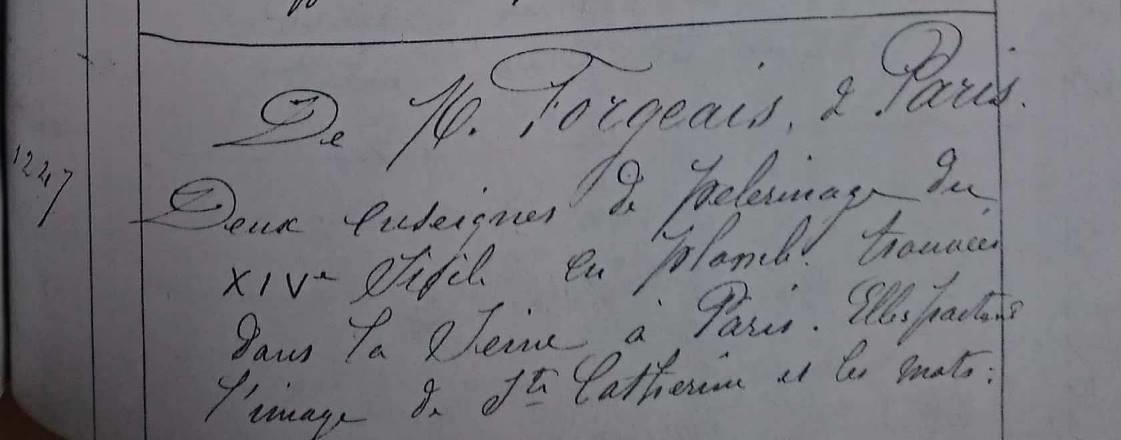 De M. Forgeais, à Paris.
1247
Deux enseignes de pelerinage du
XIVe Siècle en plomb. trouvées
dans la Seine à Paris. Elles portent
l'image de Ste Catherine et les mots: